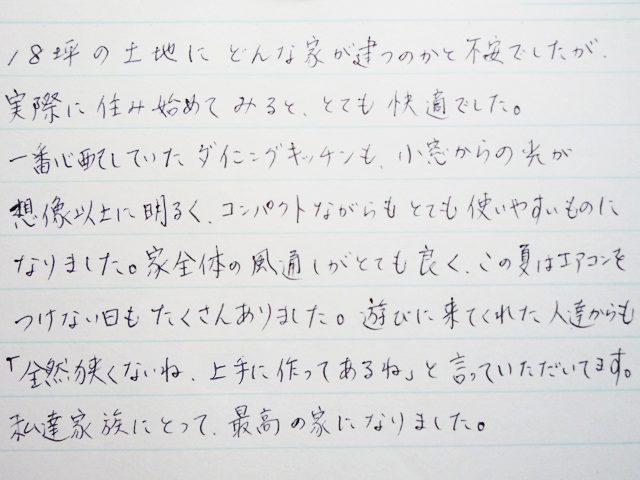 18坪の土地にどんな家が建つのかと不安でしたが、
実際に住み始めてみると、とても快適でした。
一番心配していたダイニングキッチンも、小窓からの光が
想像以上に明るく、コンパクトながらもとても使いやすいものに
なりました。家全体の風通しがとても良く、この夏はエアコンを
つけない日もたくさんありました。遊びに来てくれた人達からも
「全然狭くないね、上手に作ってあるね」と言っていただいてます。
私達家族にとって、最高の家になりました。